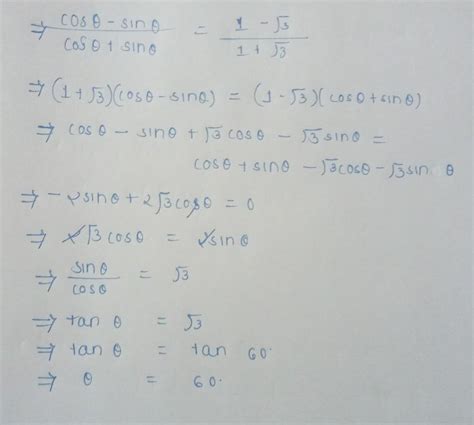 ⇒ cosθ - sinθ / cosθ + sinθ = 1 - √3 / 1 + √3
⇒ (1+√3)(cosθ-sinθ) = (1-√3)(cosθ+sinθ)
⇒ cosθ - sinθ + √3cosθ - √3sinθ =
cosθ + sinθ - √3cosθ - √3sinθ
⇒ -2sinθ + 2√3cosθ = 0
⇒ 2√3cosθ = 2sinθ
⇒ sinθ / cosθ = √3
⇒ tanθ = √3
⇒ tanθ = tan 60·
⇒ θ = 60·